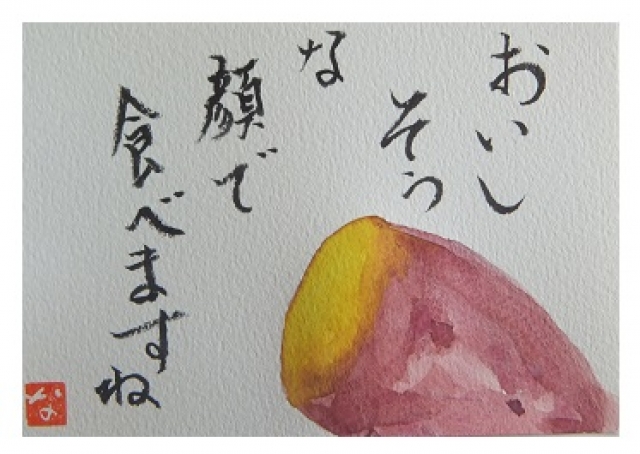 おいし
そう
な
顔で
食べますね
な